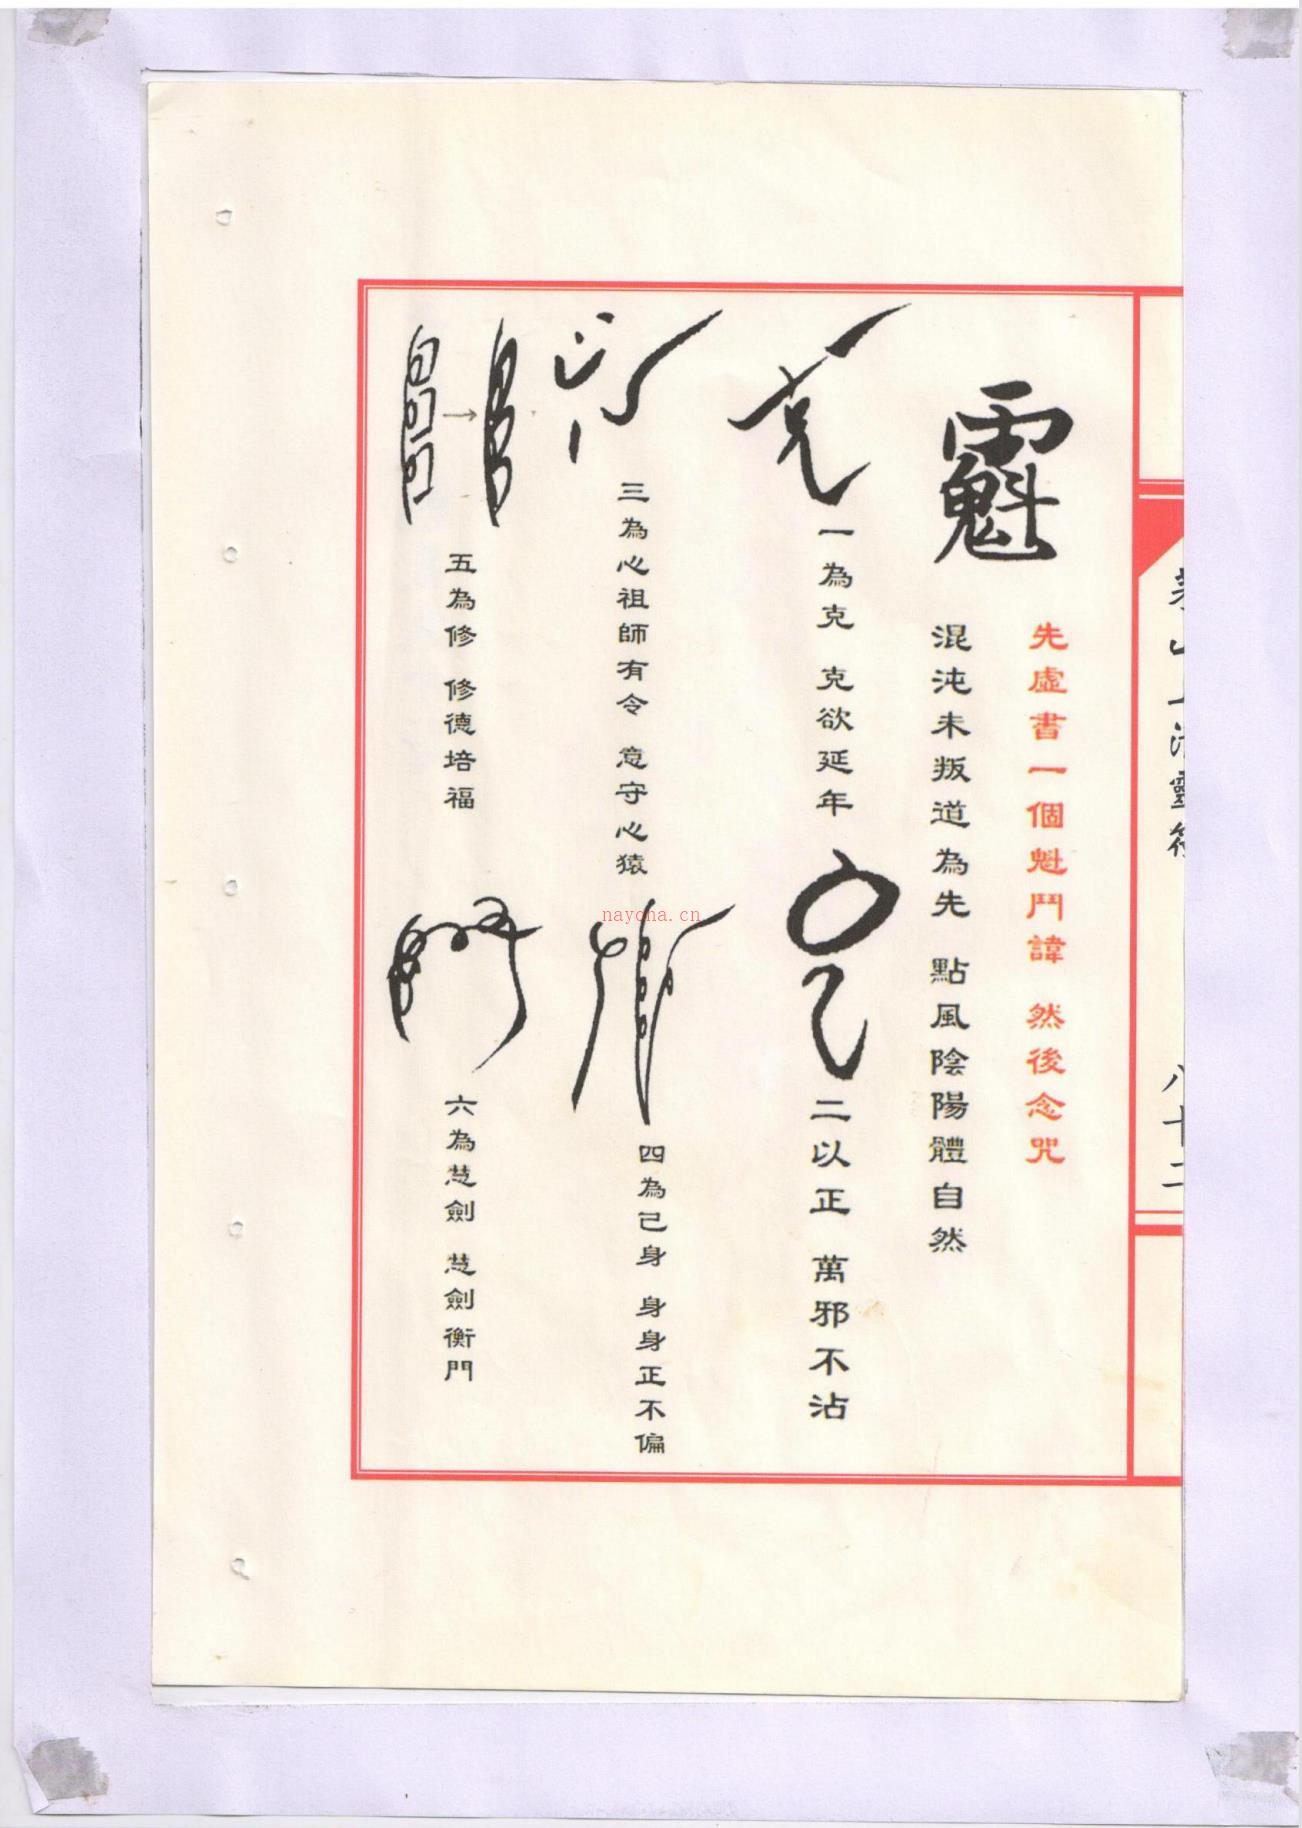 靈符
八十二
先虛書一個魁鬥諱 然後念咒
混沌未叛道為先 點風陰陽體自然
一為克 克欲延年
二以正 萬邪不沾
三為心祖師有令 意守心猿
四為己身 身身正不偏
五為修 修德培福
六為慧劍 慧劍衡門
nayona.cn